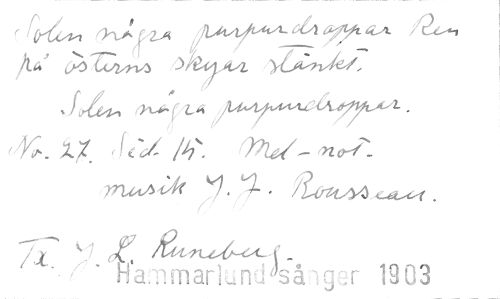 Solen några purpurdroppar Ren
på österns skyar stänkt.
Solen några purpurdroppar.
No. 27. Sid. 15. Mel-not.
musik J. J. Rousseau.
Tx. J. L. Runeberg.
Hammarlund sånger 1903